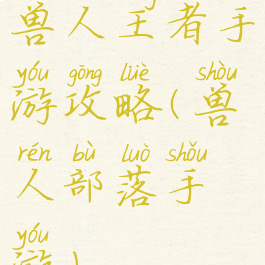 兽人王者手
yóu gōng lüè shòu
游攻略(兽
rén bù luò shǒu
人部落手
yóu
游)